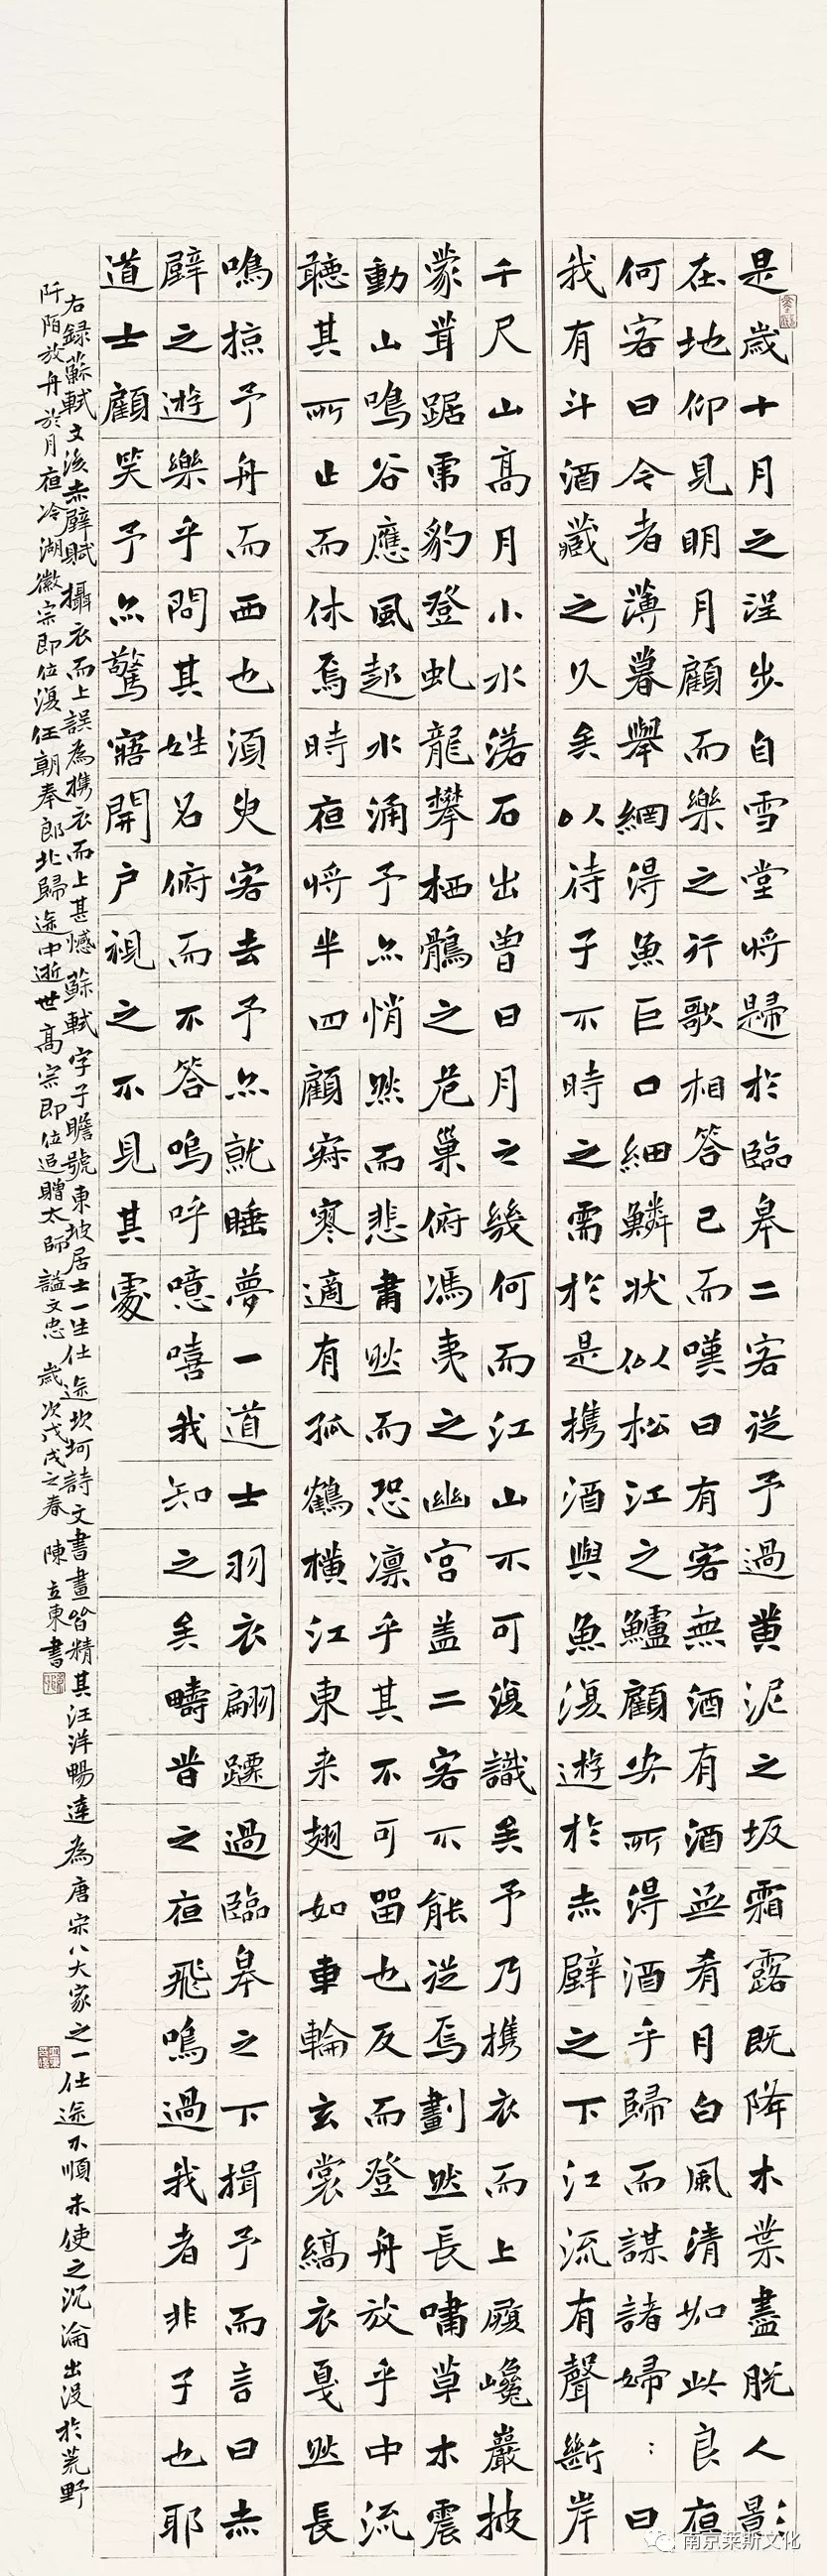 是歲十月之望步自雪堂將歸於臨皋二客從予過黃泥之坂霜露既降木葉盡脫人影
在地仰見明月顧而樂之行歌相答已而嘆曰有客無酒有酒無肴月白風清如此良夜
何客曰今者薄暮舉網得魚巨口細鱗狀似松江之鱸顧安所得酒乎歸而謀諸婦：曰
我有斗酒藏之久矣以待子不時之需於是携酒與魚復遊於赤壁之下江流有聲斷岸
千尺山高月小水落石出曾日月之幾何而江山不可復識矣予乃携衣而上履巉巖披
蒙茸踞虎豹登虬龍攀栖鶻之危巢俯馮夷之幽宮盖二客不能從焉劃然長嘯草木震
動山鳴谷應風起水涌予亦悄然而悲肅然而恐凛乎其不可留也反而登舟放乎中流
聽其所止而休焉時夜將半四顧寂寥適有孤鶴橫江東来翅如車輪玄裳縞衣戛然長
鳴掠予舟而西也須臾客去予亦就睡夢一道士羽衣翩躚過臨皋之下揖予而言曰赤
壁之遊樂乎問其姓名俯而不答嗚呼噫嘻我知之矣疇昔之夜飛鳴過我者非子也耶
道士顧笑予亦驚寤開戶視之不見其處
右録蘇軾文後赤壁賦攝衣而上誤為携衣而上甚憾蘇軾字子瞻號東坡居士一生仕途坎坷詩文書畫皆精其汪洋暢達為唐宋八大家之一仕途不順未使之沉淪出没於荒野
阡陌放舟於月夜冷湖徽宗即位復任朝奉郎北歸途中逝世高宗即位追贈太師謚文忠歲次戊戌之春陳立東書
南京莱斯文化